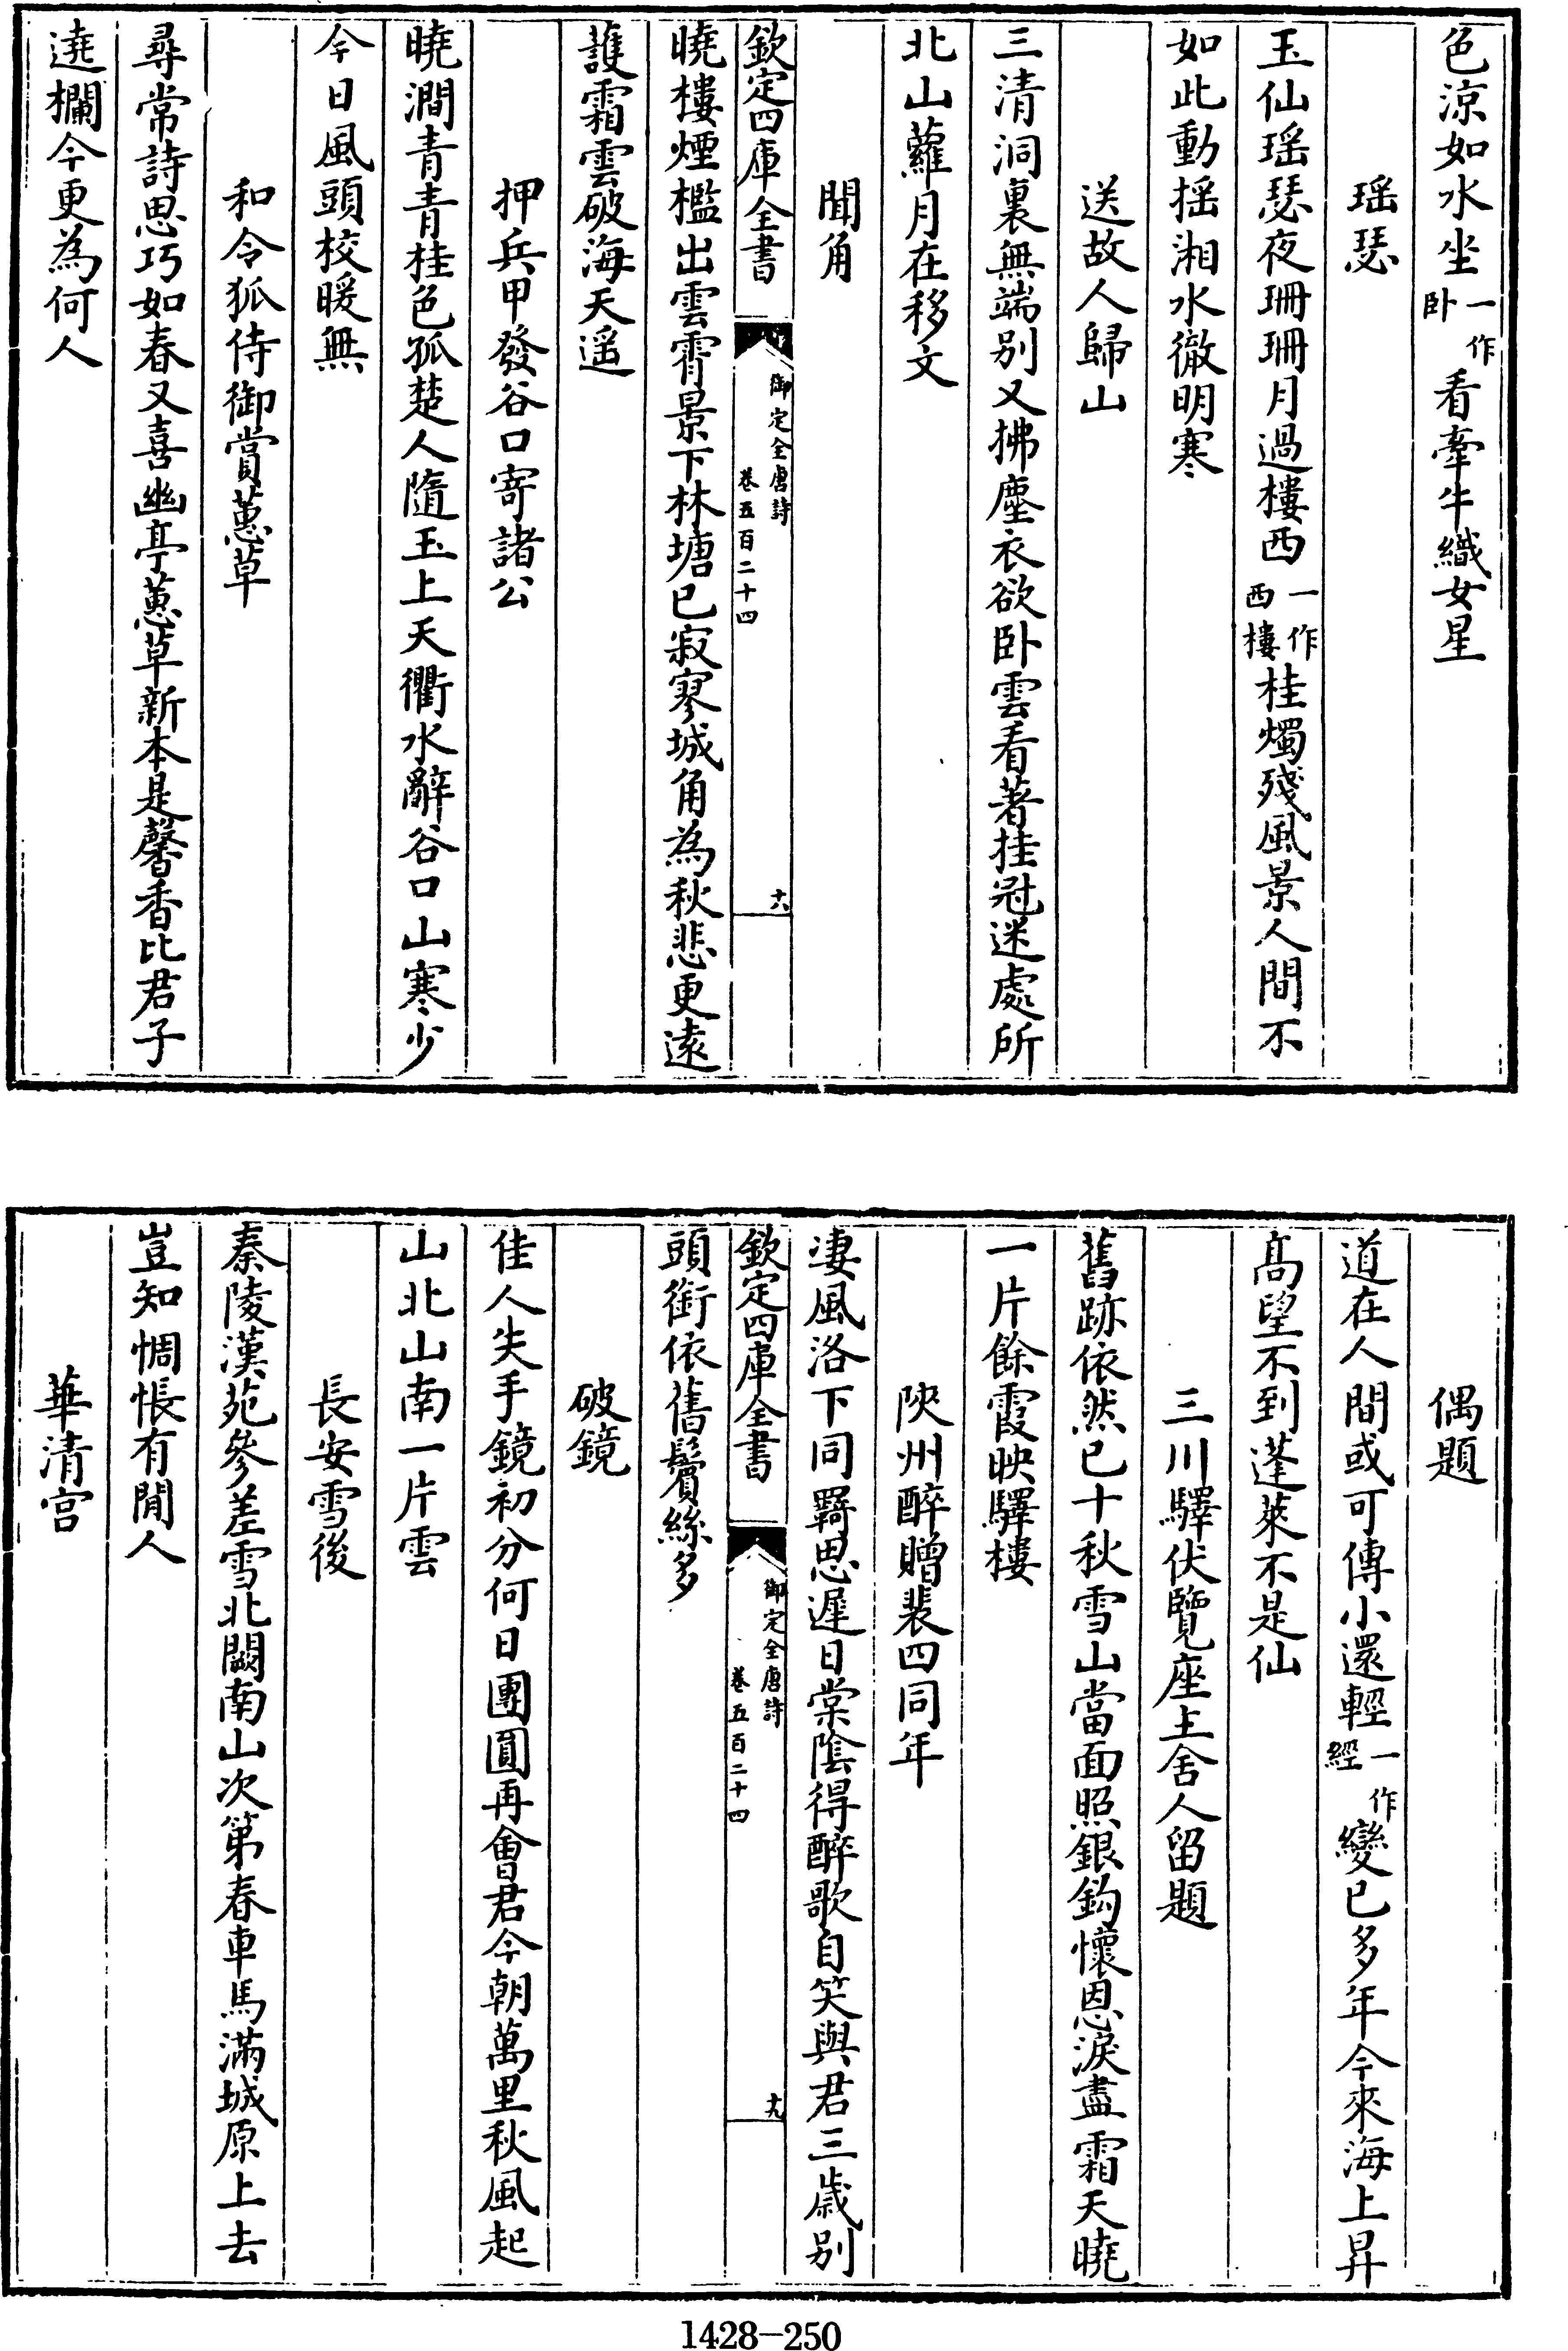 色涼如水坐一作卧看牽牛織女星
瑶瑟
玉仙瑶瑟夜珊珊月過樓西一作西樓桂燭殘風景人間不
如此動揺湘水徹明寒
送故人歸山
三清洞裏無端别又拂塵衣欲卧雲看著挂冠迷處所
北山蘿月在移文
聞角
欽定四庫全書
御定全唐詩
卷五百二十四
十六
曉樓煙檻出雲霄景下林塘已寂寥城角為秋悲更逺
護霜雲破海天遥
押兵甲發谷口寄諸公
曉澗青青桂色孤楚人隨玉上天衢水辭谷口山寒少
今日風頭校暖無
和令狐侍御賞蕙草
尋常詩思巧如春又喜幽亭蕙草新本是馨香比君子
遶欄今更為何人
偶題
道在人間或可傳小還輕一作經變已多年今來海上昇
髙望不到蓬萊不是仙
三川驛伏覽座主舍人留題
舊跡依然已十秋雪山當面照銀鈎懷恩淚盡霜天曉
一片餘霞映驛樓
陜州醉贈裴四同年
凄風洛下同羇思遲日棠隂得醉歌自笑與君三歲别
欽定四庫全書
御定全唐詩
卷五百二十四
十九
頭銜依舊鬢絲多
破鏡
佳人失手鏡初分何日團圓再㑹君今朝萬里秋風起
山北山南一片雲
長安雪後
秦陵漢苑參差雪北闕南山次第春車馬滿城原上去
豈知惆悵有閒人
華清宫
1428—250